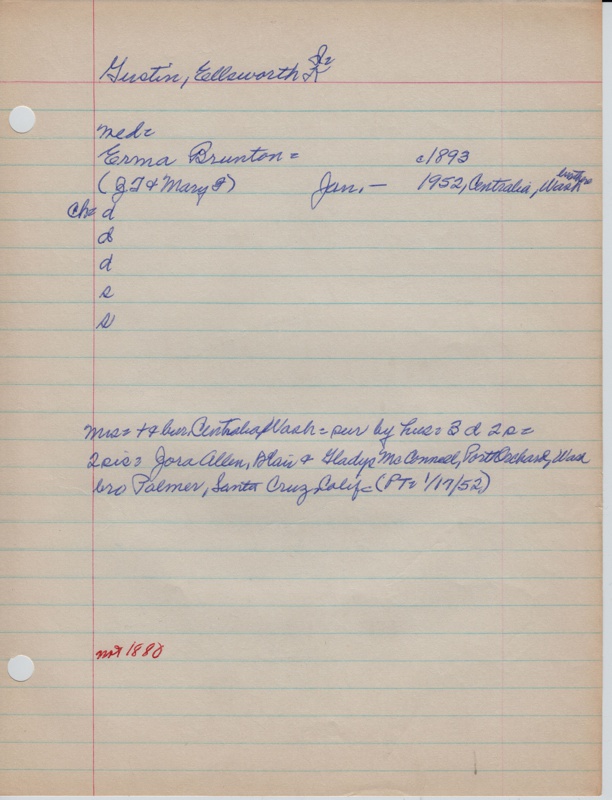 Gustin, Ellsworth Jr
med=
Erma Brunton = c1893
(J T & Mary F) Jan, - 1952, Centralia, Wash
ch= d
d
d
s
s
mrs= + & bur. Centralia, Wash = sur by hus = 3 d 2 s =
2 sis = Jora Allen, Blair & Gladys McConnell, Port Orchard, Wash
bro Palmer, Santa Cruz, Calif = (PT= 1/17/52)
not 1880